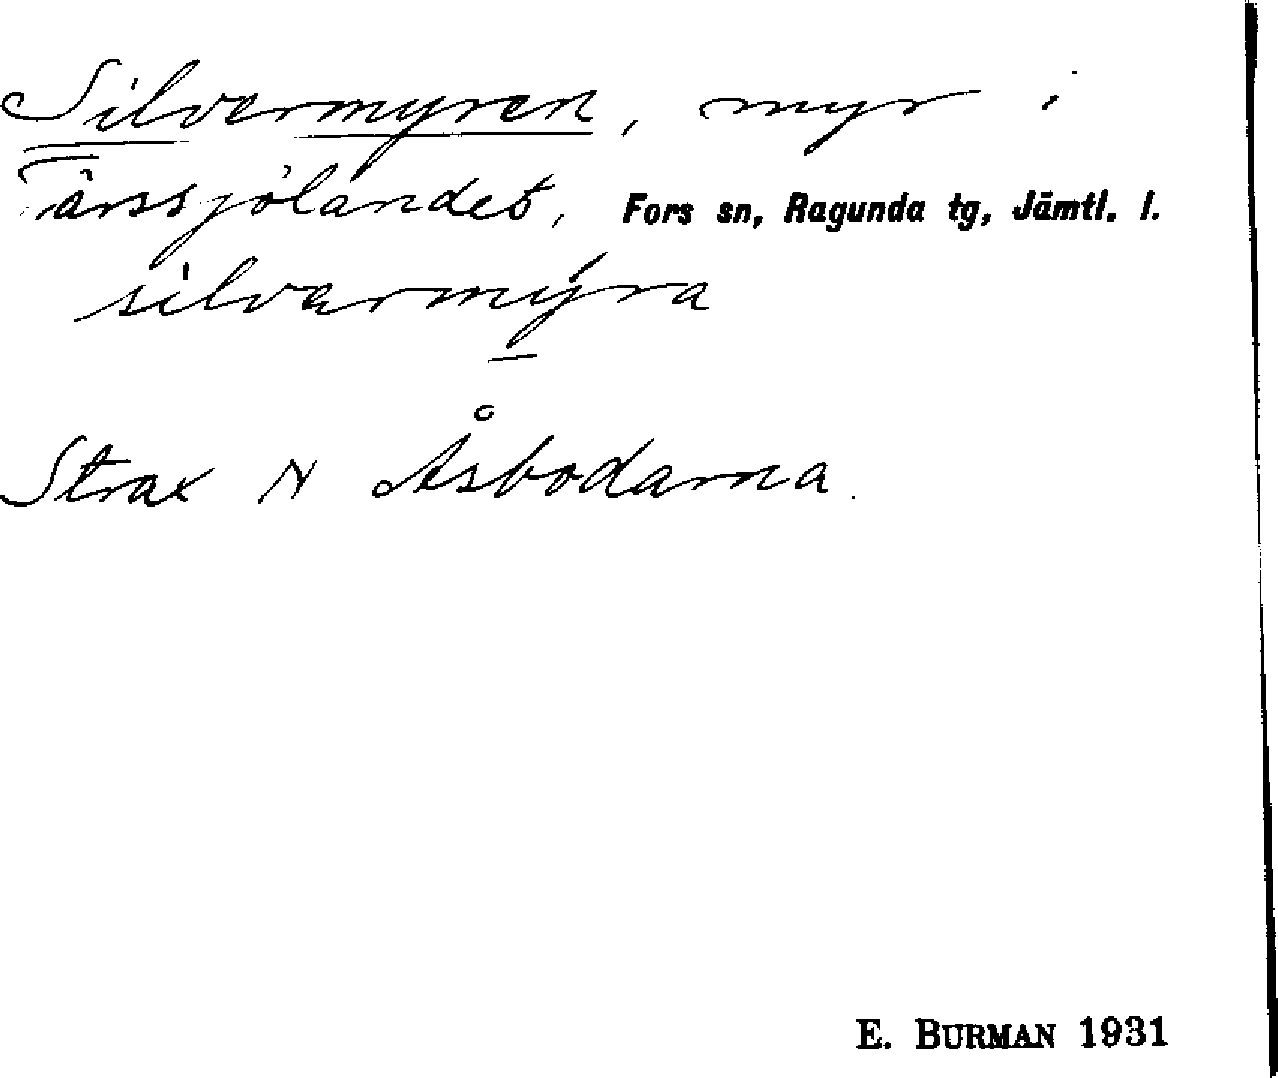 Silvermyren, myr i
Tärssjölandet, Fors sn, Ragunda tg, Jämtl. l.
silvarmýra
Strax N Åsbodarna.
E. BURMAN 1931